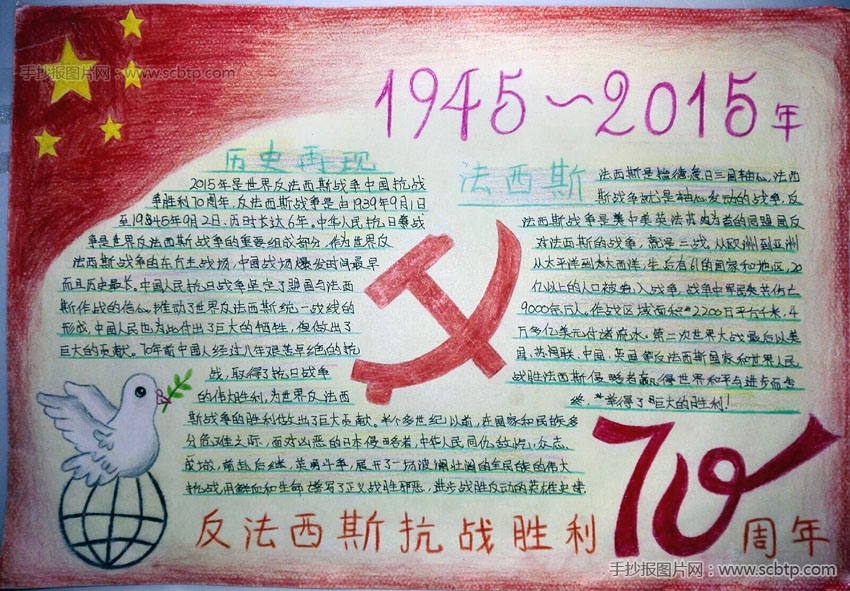 手抄报图片网：www.scbtp.com
1945～2015年
历史再现
2015年是世界反法西斯战争中国抗战
争胜利70周年,反法西斯战争是由1939年9月1日
至19845年9月2日.历时长达6年.中华人民抗日战
争是世界反法西斯战争的重要组成部分,作为世界反
法西斯战争的东方主战场,中国战场爆发时间最早
而且历史最长。中国人民抗日战争坚定了盟国与法西
斯作战的信心,推动了世界反法西斯统一战线的
形成.中国人民也为此付出了巨大的牺牲,但做出了
巨大的贡献。70年前中国人经过八年艰苦卓绝的抗
战,取得了抗日战争
的伟大胜利,为世界反法西
斯战争的胜利做出了巨大贡献。半个多世纪以前,在国家和民族多
分危难之际,面对凶恶的日本侵略者,中华人民同仇敌忾,众志
成城,前赴后继,英勇斗争,展开了一场波澜壮阔的全民族的伟大
抗战,用鲜血和生命谱写了正义战胜邪恶,进步战胜反动的英雄史
法西斯
法西斯是指德意日三国轴心,法西
斯战争就是轴心发动的战争,反
法西斯战争是美中美英法苏为首的同盟国反
对法西斯的战争,就是二战,从欧洲到亚洲
从太平洋到大西洋,先后有61的国家和地区,20
亿以上的人口被卷入战争,战争中军民共伤亡
9000余万人。作战区域面积2200万平方千米,4
万多亿美元付诸流水。第二次世界大战最后以美
国、苏联、中国、英国等反法西斯国家和世界人民
战胜法西斯侵略者赢得世界和平与进步而告
终,获得了巨大的胜利!
反法西斯抗战胜利70周年
手抄报图片网：www.scbtp.com